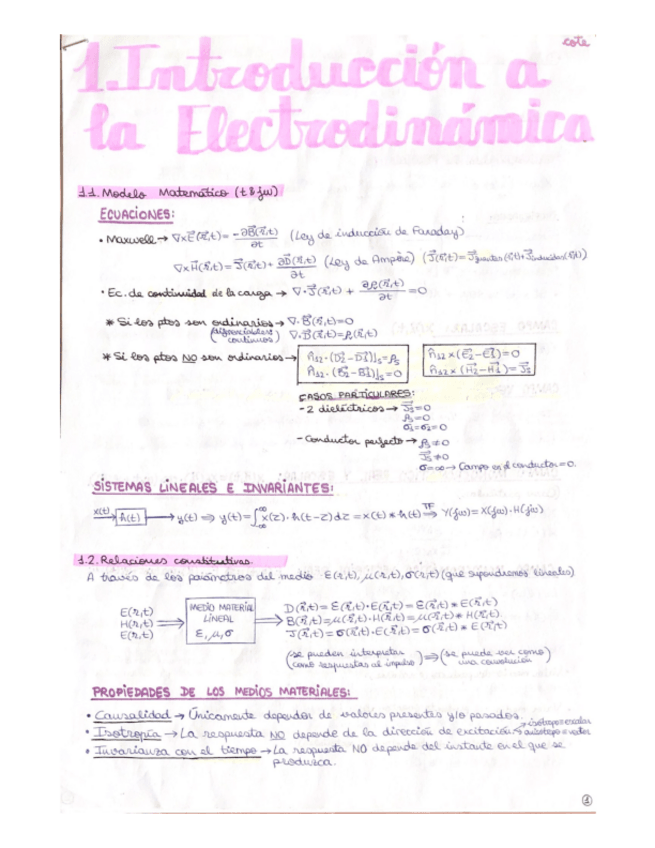 cote
1. Introducción a
la Electrodinámica
1.1. Modelo Matemático (t & jω)
ECUACIONES:
• Maxwell → ∇×E(r,t) = -∂B(r,t)/∂t (Ley de inducción de Faraday)
∇×H(r,t) = J(r,t) + ∂D(r,t)/∂t (Ley de Ampère) (J(r,t) = Jfuentes(r,t) + Jinducidas(r,t))
• Ec. de continuidad de la carga → ∇·J(r,t) + ∂ρ(r,t)/∂t = 0
* Si los ptos son ordinarios → ∇·B(r,t) = 0
(diferenciables continuos) ∇·D(r,t) = ρ(r,t)
* Si los ptos NO son ordinarios → n̂12·(D2-D1)|s = ρs n̂12×(E2-E1) = 0
n̂12·(B2-B1)|s = 0 n̂12×(H2-H1) = Js
CASOS PARTICULARES:
- 2 dieléctricos → Js = 0
ρs = 0
σ1 = σ2 = 0
- Conductor perfecto → ρs ≠ 0
Js ≠ 0
σ = ∞ → Campo en el conductor = 0.
SISTEMAS LINEALES E INVARIANTES:
x(t) → h(t) → y(t) ⇒ y(t) = ∫ x(τ)·h(t-τ)dτ = x(t) * h(t) TF⇒ Y(jω) = X(jω)·H(jω)
1.2. Relaciones constitutivas.
A través de los parámetros del medio ε(r,t), μ(r,t), σ(r,t) (que supondremos lineales)
E(r,t)
H(r,t)
E(r,t)
MEDIO MATERIAL
LINEAL
ε, μ, σ
D(r,t) = ε(r,t)·E(r,t) = ε(r,t) * E(r,t)
B(r,t) = μ(r,t)·H(r,t) = μ(r,t) * H(r,t)
J(r,t) = σ(r,t)·E(r,t) = σ(r,t) * E(r,t)
(se pueden interpretar como respuestas al impulso) ⇒ (se puede ver como una convolución)
PROPIEDADES DE LOS MEDIOS MATERIALES:
• Causalidad → Únicamente depender de valores presentes y/o pasados.
• Isotropía → La respuesta NO depende de la dirección de excitación → isótropo = escalar
→ anisótropo = vector
• Invarianza con el tiempo → La respuesta NO depende del instante en el que se
produzca.
1